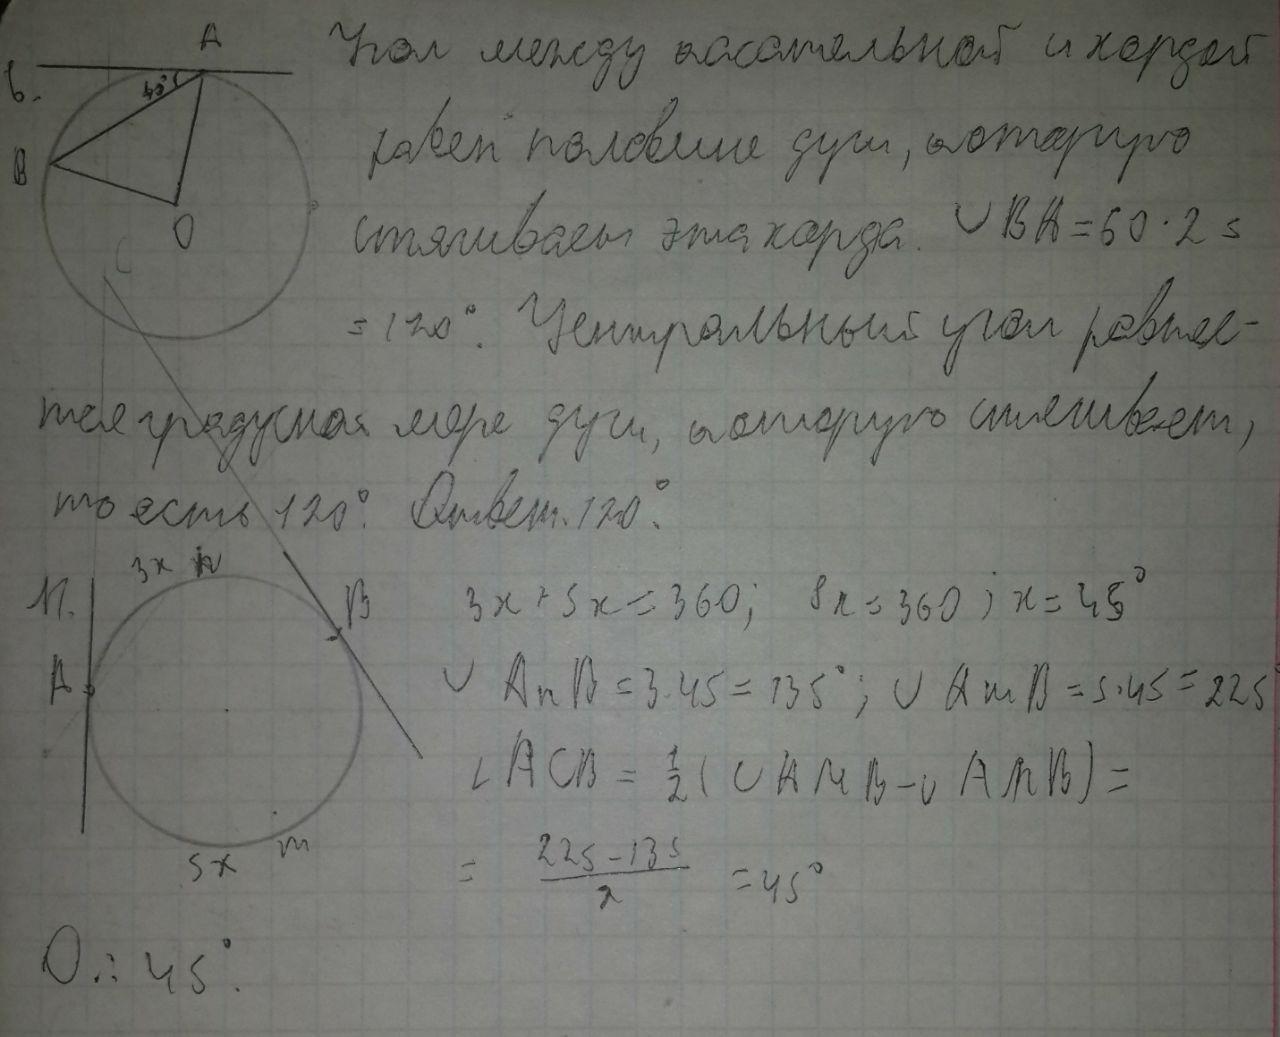 A
6.
40°
B
O
C
Угол между касательной и хордой
равен половине дуги, которую
стягивает эта хорда. ∪BA = 60·2 =
= 120°. Центральный угол равняе-
тся градусной мере дуги, которую стягивает,
то есть 120°. Ответ. 120°.
11.
3x n
B
A
m
5x
3x + 5x = 360; 8x = 360; x = 45°
∪ AnB = 3·45 = 135°; ∪ AmB = 5·45 = 225
∠ACB = 1/2 (∪AMB - ∪ANB) =
= (225 - 135)/2 = 45°
О.: 45°.